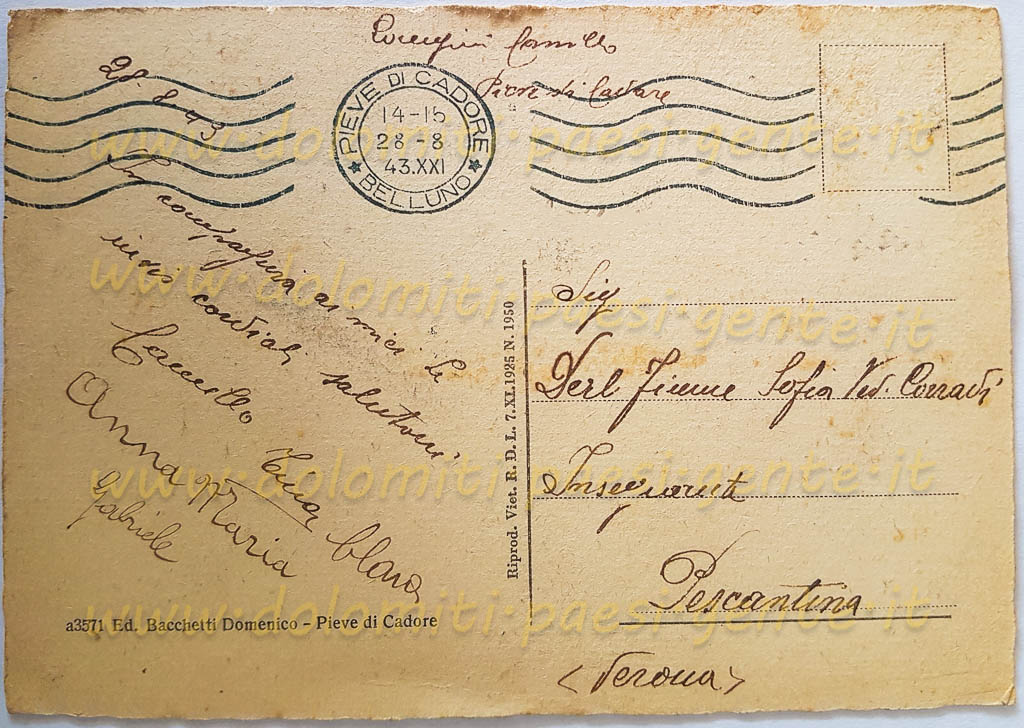 Camillo
Pieve di Cadore
28.8.43
PIEVE DI CADORE
14-15
28-8
43.XXI
BELLUNO
In compagnia amici le
invio cordiali saluti
Camillo Clara
Anna Maria
Gabriele
a3571 Ed. Bacchetti Domenico - Pieve di Cadore
Riprod. Viet. R. D. L. 7.XI.1925 N. 1950
Sig
Sofia Ved. Corradi
Insegnante
Pescantina
(Verona)
www.dolomiti-paesi-gente.it
www.dolomiti-paesi-gente.it
www.dolomiti-paesi-gente.it
www.dolomiti-paesi-gente.it